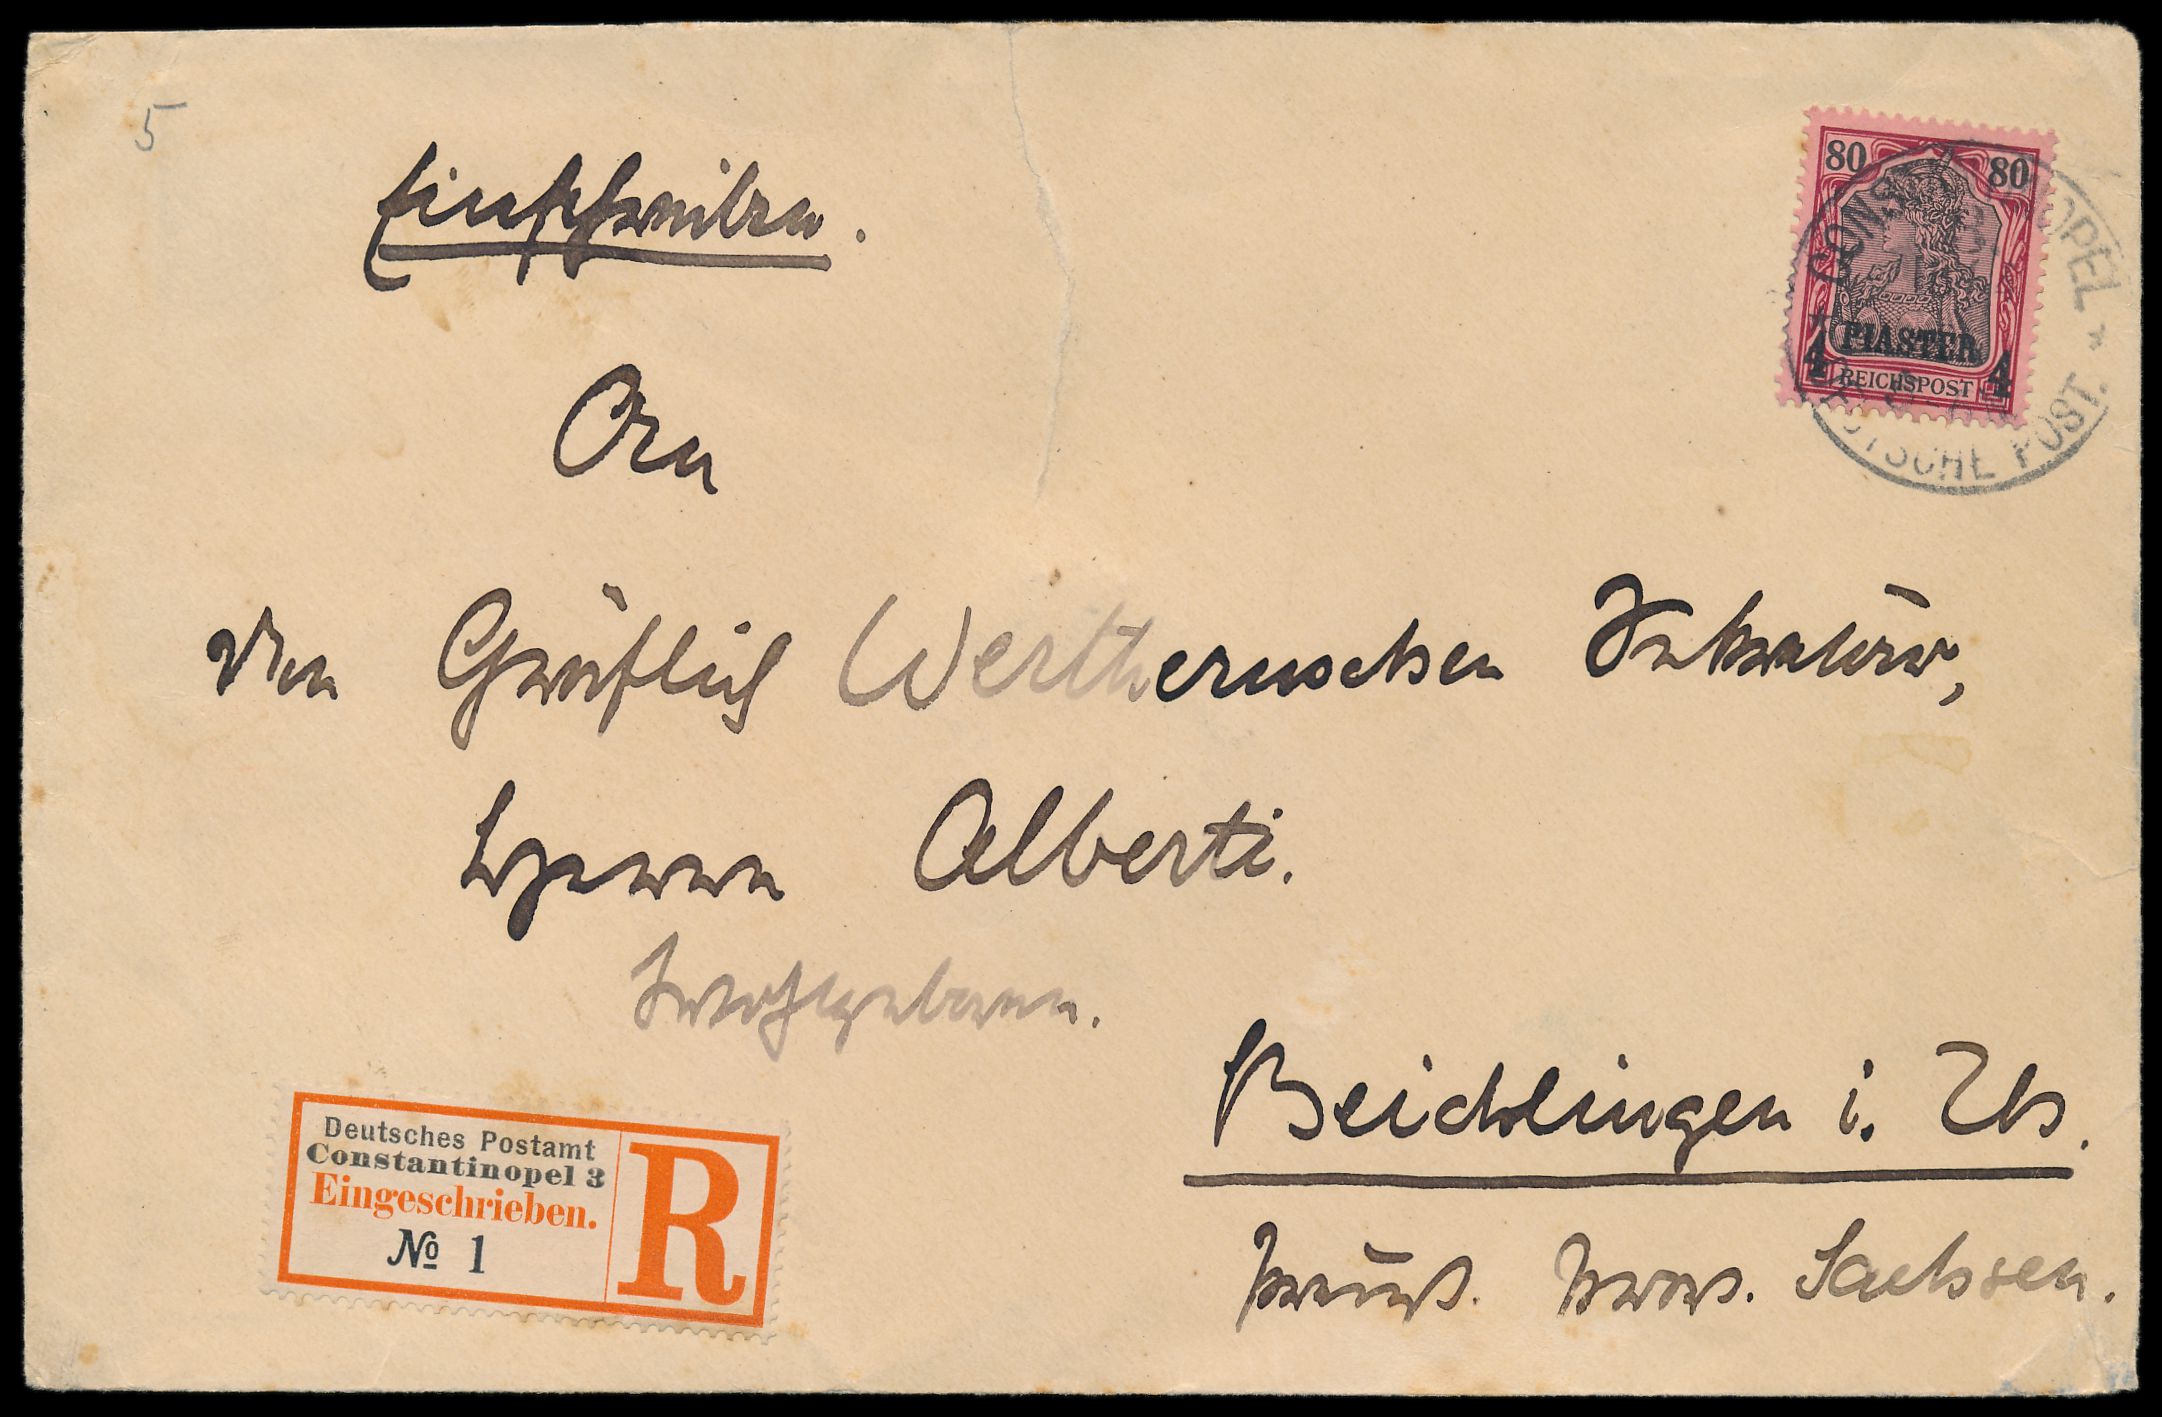 5
Einschreiben.
80 80
PIASTER
4 4
REICHSPOST
DEUTSCHE POST.
An
den Gräflich Werthernschen Sekretär,
Herrn Alberti.
Hochwohlgeboren.
Beichlingen i. Th.
Preuß. Prov. Sachsen.
Deutsches Postamt
Constantinopel 3
Eingeschrieben.
№ 1
R